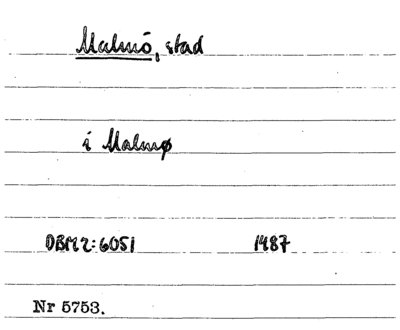 Malmö, stad
i Malmø
DBM 2:6051 1487
Nr 5753.